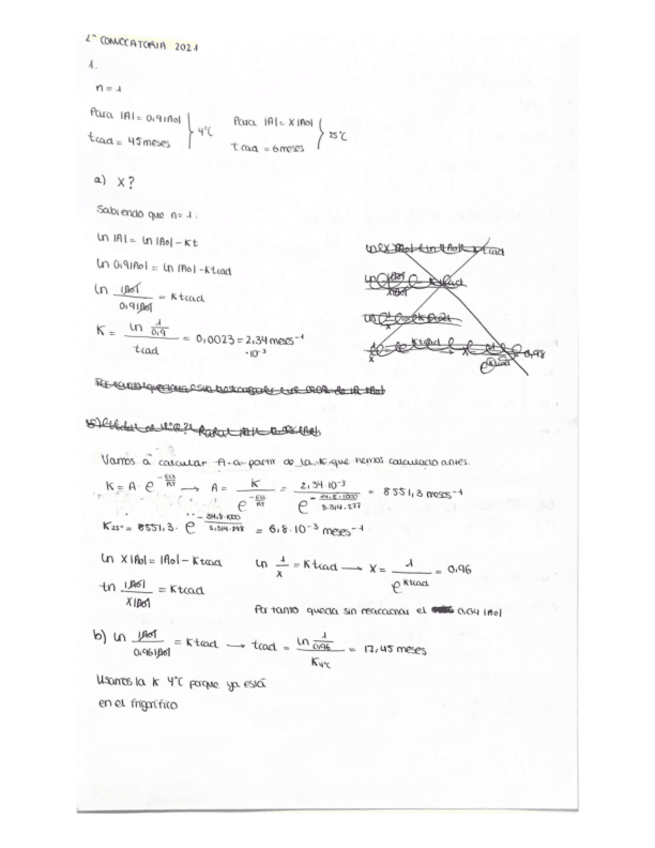 2ª CONVOCATORIA 2021
1.
n=1
Para |A|= 0,9|A₀| } 4ºC Para |A|= X|A₀| } 25ºC
tcad = 45 meses tcad = 6 meses
a) X?
Sabiendo que n=1:
ln |A| = ln |A₀| - Kt
ln 0,9|A₀| = ln |A₀| - Ktcad
ln |A₀| / 0,9|A₀| = Ktcad
K = ln 1/0,9 / tcad = 0,0023 = 2,34 meses⁻¹
·10⁻³
Vamos a calcular A a partir de la K que hemos calculado antes.
K = A · e^(-Ea/RT) → A = K / e^(-Ea/RT) = 2,34·10⁻³ / e^(-34,8·1000/8.314·277) = 8551,3 meses⁻¹
K25º = 8551,3 · e^(-34,8·1000/8,314·298) = 6,8·10⁻³ meses⁻¹
ln X|A₀| = |A₀| - Ktcad ln 1/X = Ktcad → X = 1 / e^(Ktcad) = 0,96
ln |A₀| / X|A₀| = Ktcad
Por tanto queda sin reaccionar el 0,04 |A₀|
b) ln |A₀| / 0,96|A₀| = Ktcad → tcad = ln 1/0,96 / K4ºC = 17,45 meses
Usamos la K 4ºC porque ya está
en el frigorífico